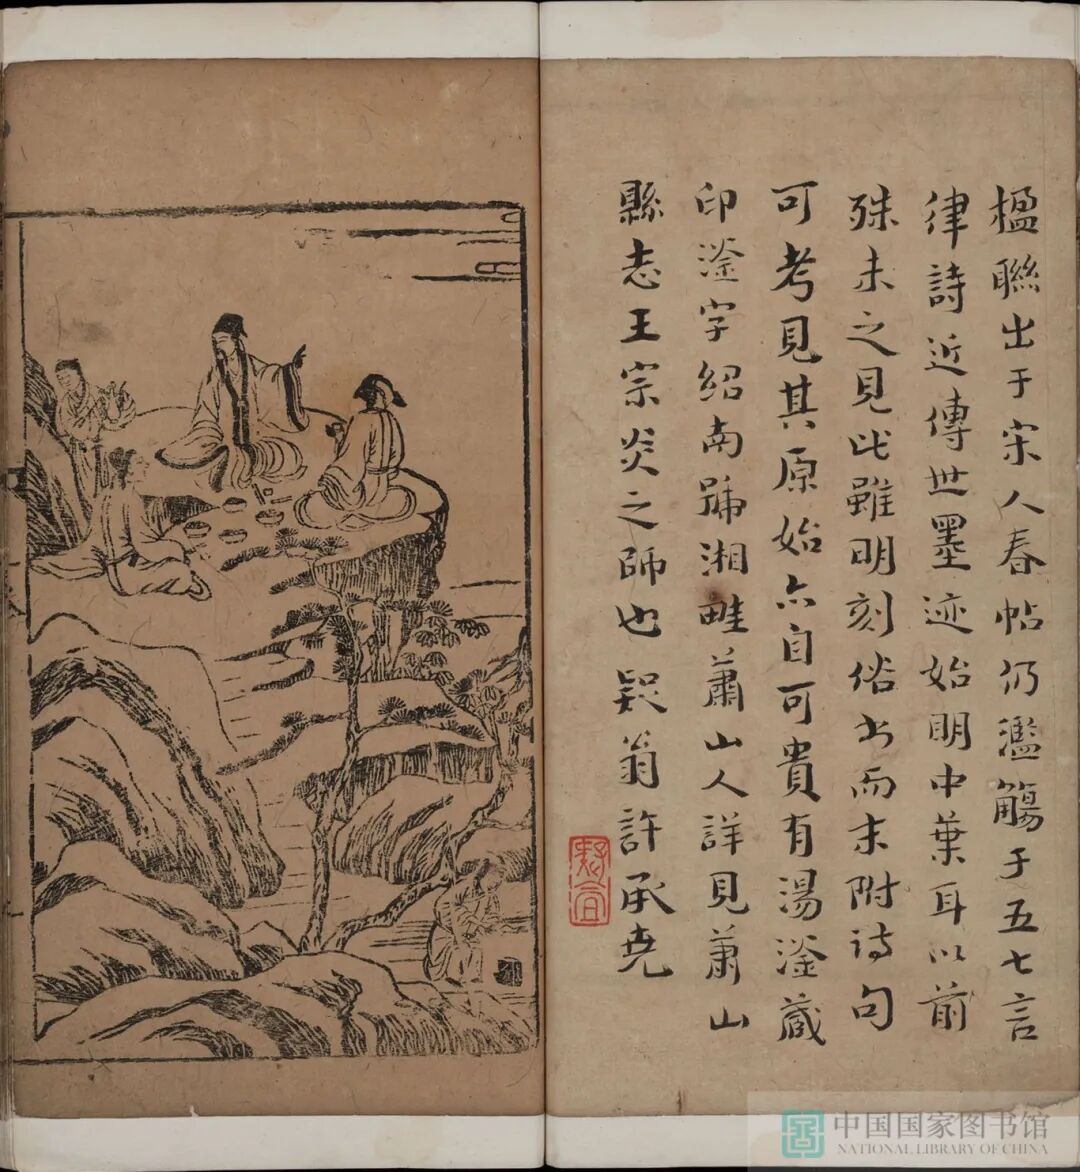 楹聯出于宋人春帖仍濫觴于五七言
律詩近傳世墨迹始明中葉耳以前
殊未之見此雖明刻俗书而末附诗句
可考見其原始亦自可貴有湯滏藏
印滏字紹南號湘畦蕭山人詳見蕭山
縣志王宗炎之師也疑翁許承堯
疑盦
中国国家图书馆
NATIONAL LIBRARY OF CHINA